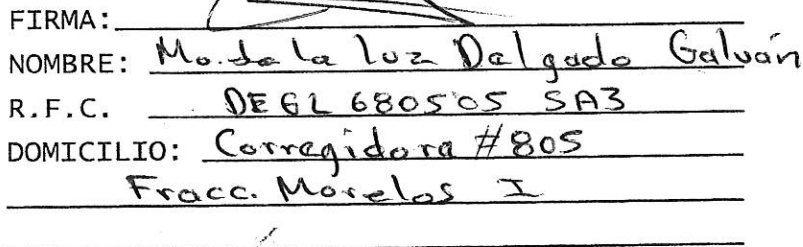 FIRMA:
NOMBRE: Ma. de la luz Delgado Galván
R.F.C. DEGL 680505 SA3
DOMICILIO: Corregidora #805
Fracc. Morelos I